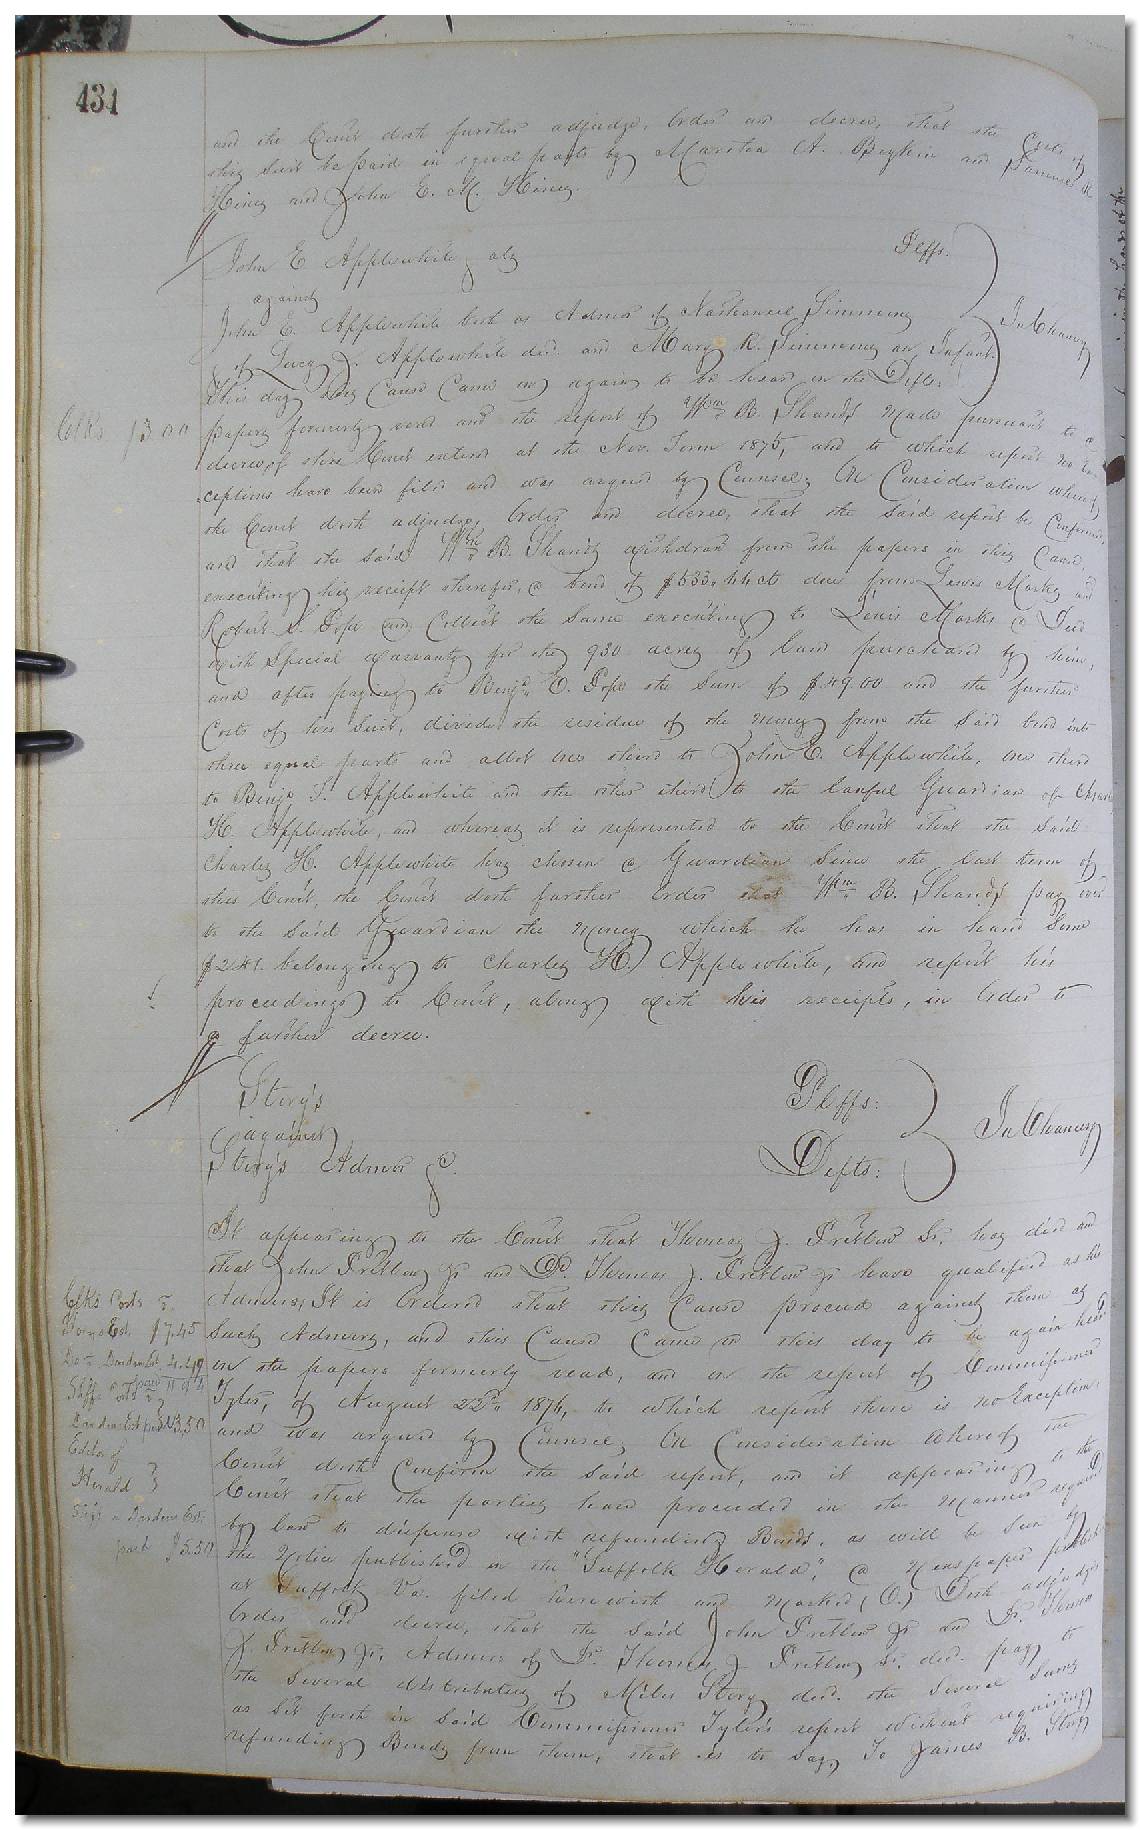 431
and the Court doth further adjudge, Order and decree, that the Costs of
this Suit be paid in equal parts by Martha A. Boykin and
Hines and John E. M. Hines.
John E Applewhite als Plffs.
against
John E. Applewhite both as Admor of Nathaniel Simmons
& of Lucy J. Applewhite decd. and Mary R. Simmons an Infant. In Chancery
Defts.
This day this Cause Came on again to be heard on the
papers formerly read and the report of Wm B. Shands made pursuant to a
Clks 13.00
decree of this Court entered at the Nov. Term 1875, and to which report no ex
ceptions have been filed and was argued by Counsel, On Consideration whereof
the Court doth adjudge, Order and decree, that the said report be Confirmed,
and that the said Wm B. Shands withdraw from the papers in this Cause,
executing his receipt therefor, a bond of $533.44cts due from Lewis Marks and
Robert S. Pope and Collect the Same executing to Lewis Marks a Deed
with Special warranty for the 930 acres of land purchased by him,
and after paying to Benja. E. Pope the Sum of $49.00 and the further
Costs of this Suit, divide the residue of the money from the said bond into
three equal parts and allot one third to John E. Applewhite, one third
to Benja F. Applewhite and the other third to the lawful Guardian of Charles
H. Applewhite, and whereas it is represented to the Court that the said
Charles H. Applewhite has chosen a Guardian Since the last term of
this Court, the Court doth further Order that Wm B. Shands pay over
to the said Guardian the money which he has in hand Some
belonging to Charles H. Applewhite, and report his
proceedings to Court, along with his receipts, in Order to
a further decree.
Story's Plffs:
against In Chancery
Story's Admor &c. Defts:
It appearing to the Court that Thomas J. Pretlow Sr. has died and
that John Pretlow Jr and Dr. Thomas J. Pretlow Jr have qualified as his
Admors, It is Ordered that this Cause proceed against them as
Such Admors, and this Cause Came on this day to be again heard
on the papers formerly read, and on the report of Commissioner
Tyler, of August 22nd 1876, to which report there is no Exception,
and was argued by Counsel, On Consideration Whereof the
Court doth Confirm the said report, and it appearing to the
Court that the parties have proceeded in the manner required
by law to dispense with refunding Bonds, as will be Seen by
the Notice published in the "Suffolk Herald," a Newspaper published
at Suffolk Va. filed herewith and marked (O.) Doth adjudge
Order and decree, that the said John Pretlow Jr and Dr. Thomas
J. Pretlow Jr, Admors of Dr. Thomas J. Pretlow Sr. decd. pay to
the Several distributees of Miles Story decd. the Several Sums
as Set forth in said Commissioner Tyler's report without requiring
refunding Bonds from them, that is to say, To James B. Story
Clk's Costs
Story's Est. $7.45
Do Dardens Est 4.49
Darden Est paid $3.50
Editor of
Herald
Darden's Est.
paid $5.50